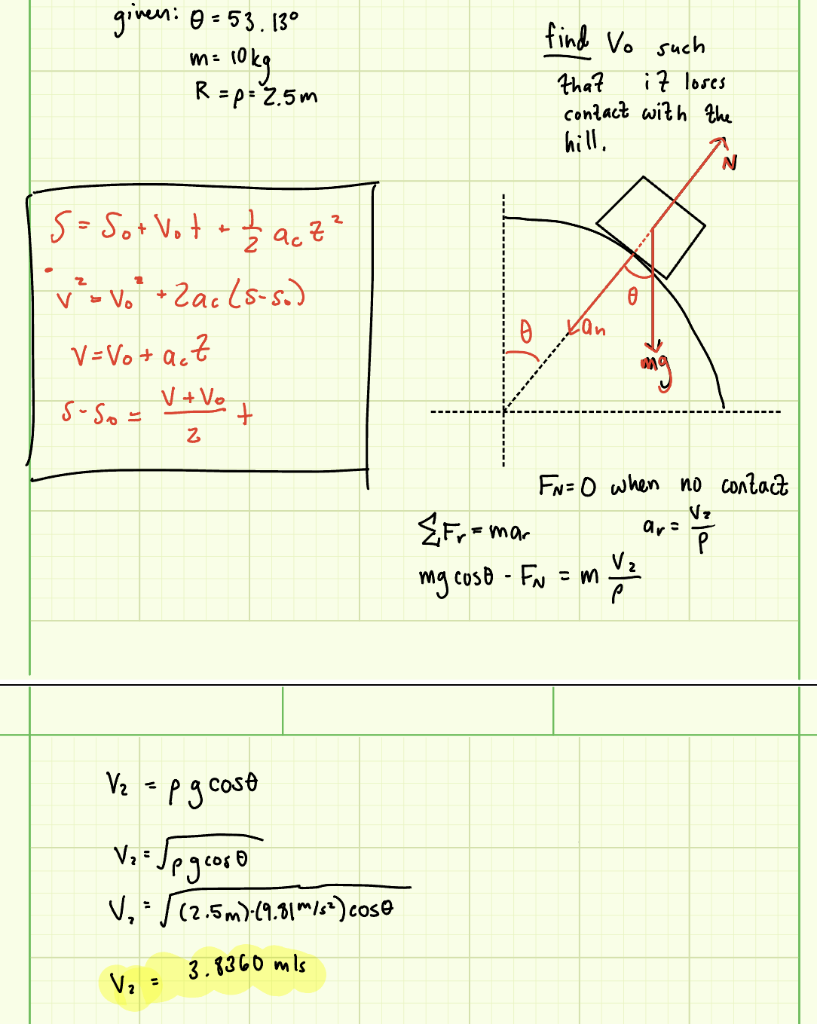 given: θ = 53.13°
m = 10 kg
R = ρ = 2.5 m
find V₀ such
that it loses
contact with the
hill.
S = S₀ + V₀ t + 1/2 a_c t²
v² = V₀² + 2a_c (s-s₀)
V = V₀ + a_c t
s - s₀ = (V + V₀)/2 t
N
θ
θ
a_n
mg
F_N = 0 when no contact
ΣF_r = ma_r
a_r = V₂/ρ
mg cosθ - F_N = m V₂/ρ
V₂ = ρ g cosθ
V₂ = √(ρ g cosθ)
V₂ = √((2.5m)·(9.81 m/s²) cosθ)
V₂ = 3.8360 m/s